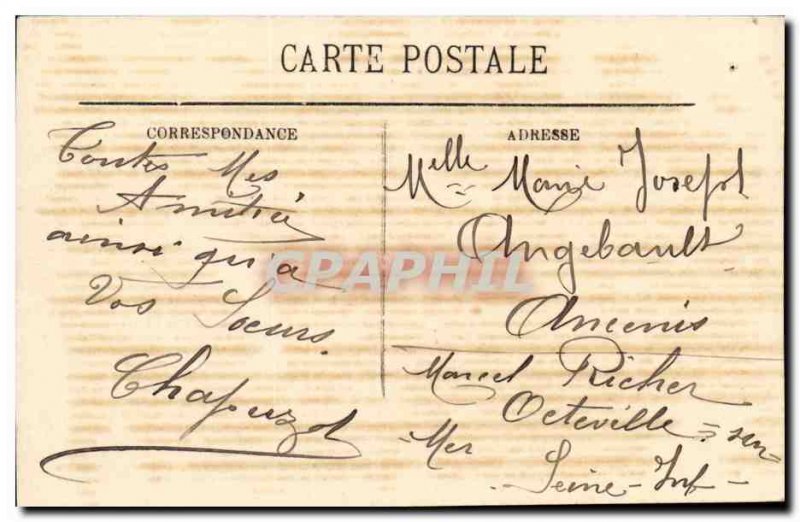 CARTE POSTALE
CORRESPONDANCE
Toutes Mes
Amitiés
ainsi qu'a
Vos Soeurs.
Chapuzot
ADRESSE
Melle Marie Joseph
Angebault
Ancenis
Marcel Richer
Octeville = sur
- Mer
Seine - Inf -
CPAPHIL